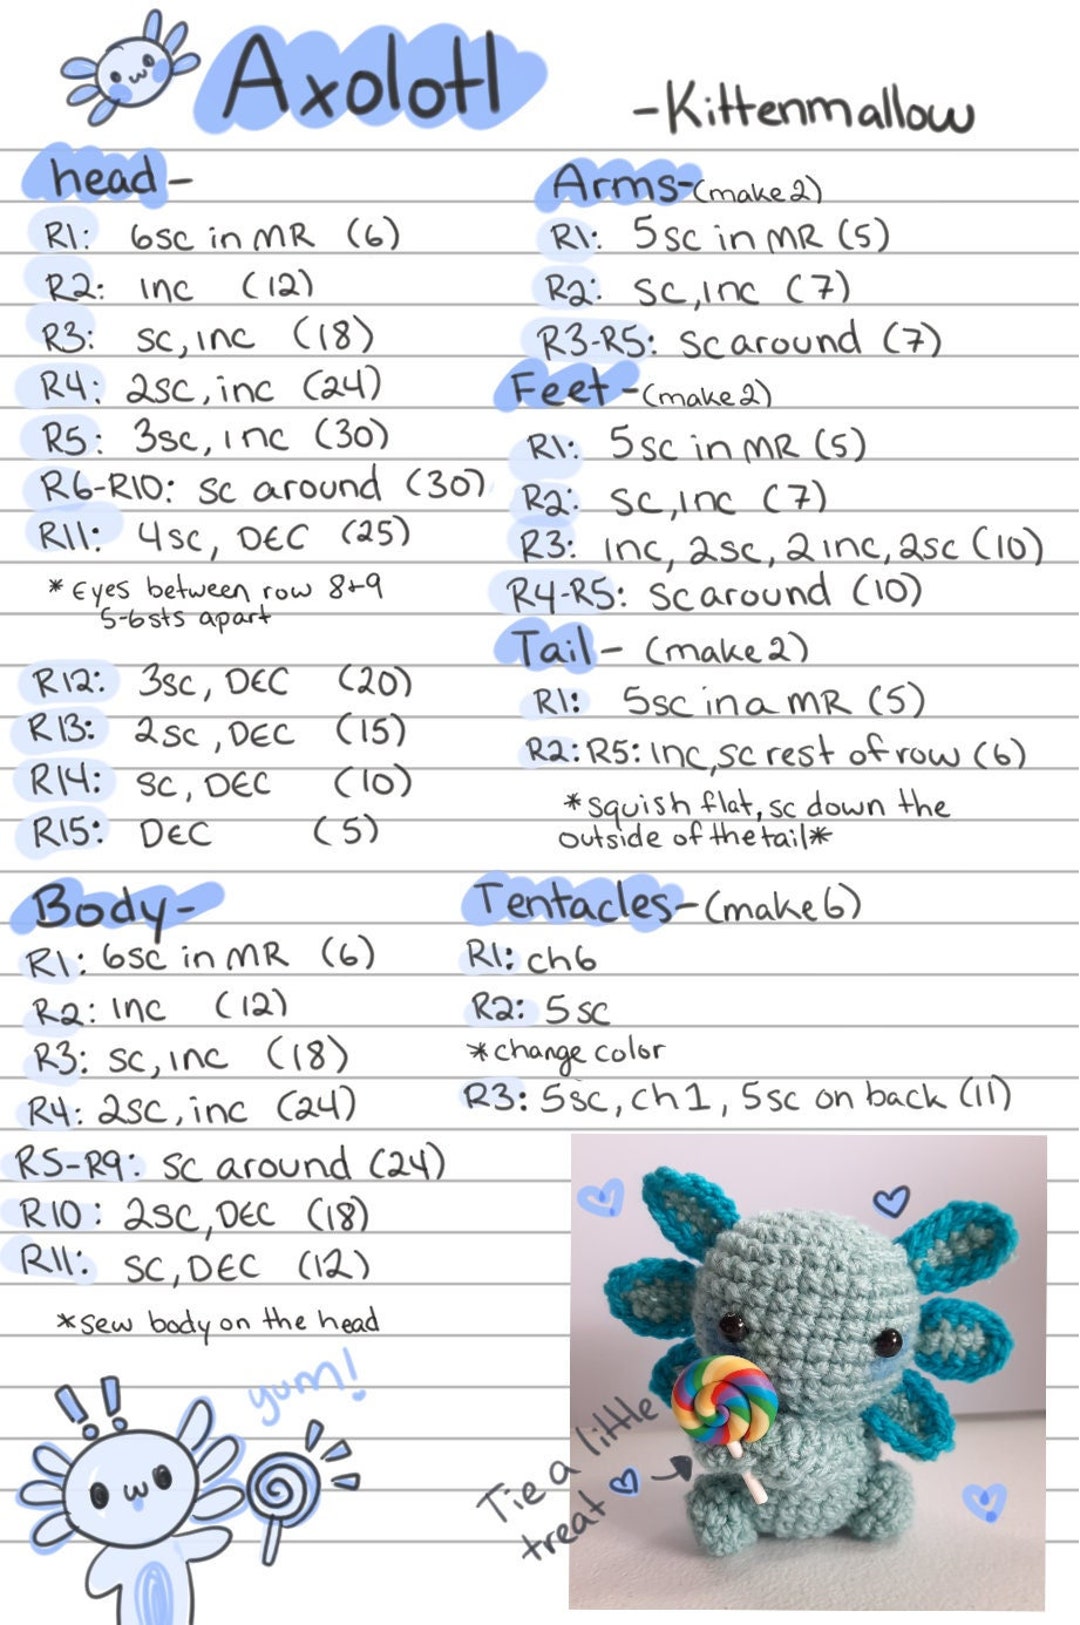 Axolotl
-Kittenmallow
head-
R1: 6sc in MR (6)
R2: inc (12)
R3: sc, inc (18)
R4: 2sc, inc (24)
R5: 3sc, inc (30)
R6-R10: sc around (30)
R11: 4sc, DEC (25)
* Eyes between row 8+9
5-6sts apart
R12: 3sc, DEC (20)
R13: 2sc, DEC (15)
R14: sc, DEC (10)
R15: DEC (5)
Body-
R1: 6sc in MR (6)
R2: inc (12)
R3: sc, inc (18)
R4: 2sc, inc (24)
R5-R9: sc around (24)
R10: 2sc, DEC (18)
R11: sc, DEC (12)
*sew body on the head
yum!
Arms-(make 2)
R1: 5sc in MR (5)
R2: sc, inc (7)
R3-R5: sc around (7)
Feet-(make 2)
R1: 5sc in MR (5)
R2: sc, inc (7)
R3: inc, 2sc, 2 inc, 2sc (10)
R4-R5: sc around (10)
Tail- (make 2)
R1: 5sc in a MR (5)
R2: R5: inc, sc rest of row (6)
*squish flat, sc down the
outside of the tail*
Tentacles-(make 6)
R1: ch6
R2: 5sc
*change color
R3: 5sc, ch1, 5sc on back (11)
Tie a little
treat